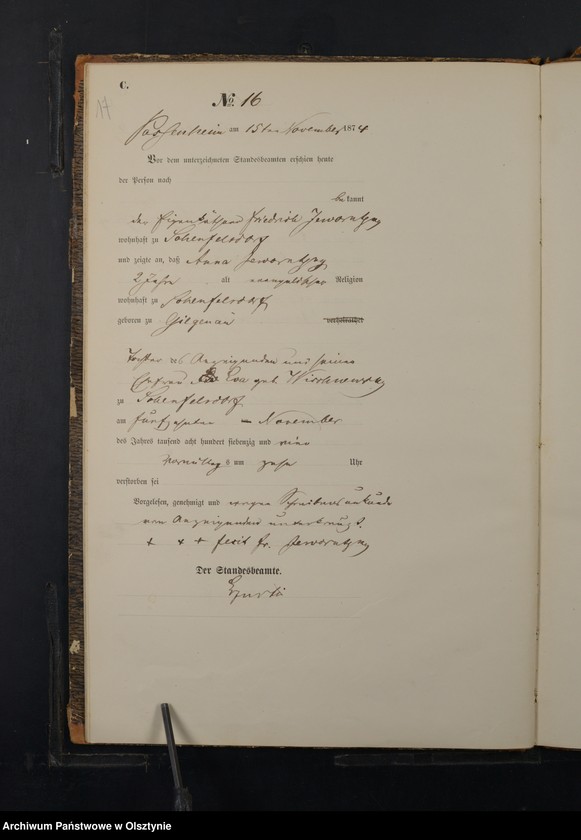 C.
17
№ 16
Passenheim am 15ten November 1874
Vor dem unterzeichneten Standesbeamten erschien heute
der Person nach
bekannt
der Eigenkäthner Friedrich Jeworutzky
wohnhaft zu
und zeigte an, daß Anna Jeworutzky
2 Jahre alt evangelischer Religion
wohnhaft zu
geboren zu Gilgenau verheirathet
Tochter des Anzeigenden und seiner
Ehefrau Eva geb.
zu
am fünfzehnten November
des Jahres tausend acht hundert siebenzig und vier
Vormittags um zehn Uhr
verstorben sei
Vorgelesen, genehmigt und wegen Schreibensunkunde
vom Anzeigenden unterkreuzt.
+ + + fecit Fr. Jeworutzky
Der Standesbeamte.
Archiwum Państwowe w Olsztynie